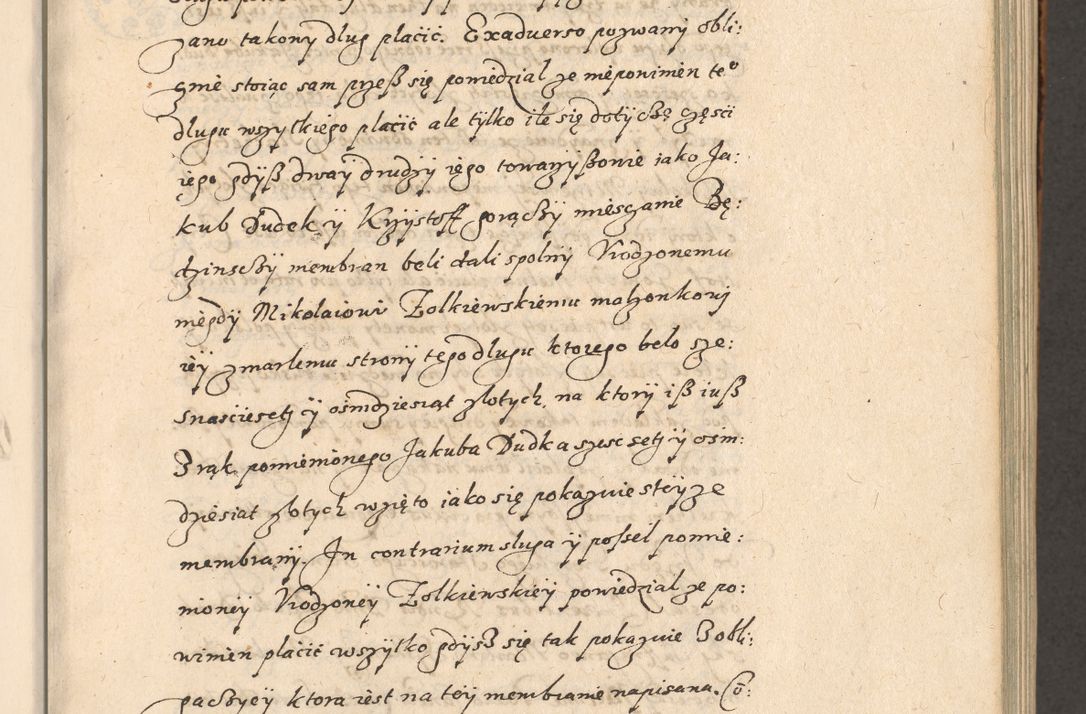 zano takowy dlug placic. Exaduerso pozwany obli:
gnie stoiąc sam przeß się powiedzial ze nie powinien te°
dlugu wszytkiego placic ale tylko ile się dotycże częsci
iego gdyß dway drudzy iego towarzyßowie iako Ja:
kub Dudek y Krzystoff gorącży miesczanie Bę:
dzinscży membran beli dali spolny Vrodzonemu
niegdy Mikolaiowi Zolkiewskiemu malzonkowi
iey zmarlemu strony tego dlugu ktorego belo sze:
snasciesetz y osmdziesiąt zlotych, na ktory iß iuß
Z rąk pomienionego Jakuba Dudka szescsetz y osm:
dziesiat zlotych wzięto iako się pokazuie s teyze
membrany. In contrarium sluga y possel pomie:
nioney Vrodzoney Zolkiewskiey powiedzial ze po:
winien placic wszytko gdysz się tak pokazuie Z obli:
gacyey ktora iest na tey membranie napisana.